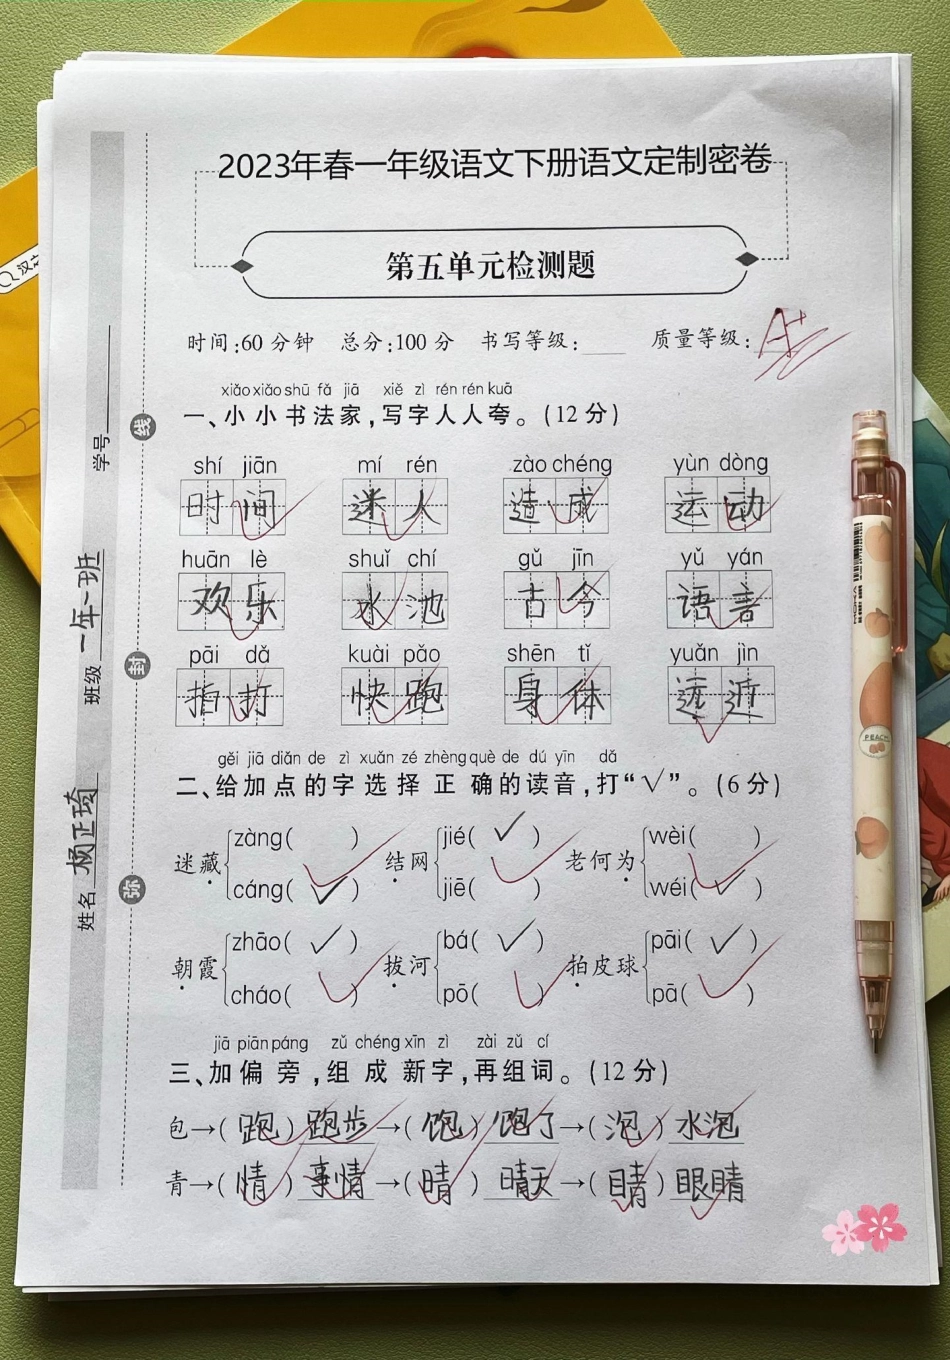 2023年春一年级语文下册语文定制密卷
第五单元检测题
时间:60分钟 总分:100分 书写等级: 质量等级: A+
xiǎo xiǎo shū fǎ jiā xiě zì rén rén kuā
一、小小书法家,写字人人夸。(12分)
shí jiān mí rén zào chéng yùn dòng
时间 迷人 造成 运动
huān lè shuǐ chí gǔ jīn yǔ yán
欢乐 水池 古今 语言
pāi dǎ kuài pǎo shēn tǐ yuǎn jìn
拍打 快跑 身体 远近
gěi jiā diǎn de zì xuǎn zé zhèng què de dú yīn dǎ
二、给加点的字选择正确的读音,打“√”。(6分)
迷藏 zàng( ) cáng( ✓ ) 结网 jié( ✓ ) jiē( ) 老何为 wèi( ) wéi( ✓ )
朝霞 zhāo( ✓ ) cháo( ) 拔河 bá( ✓ ) pō( ) 拍皮球 pāi( ✓ ) pā( )
jiā piān páng zǔ chéng xīn zì zài zǔ cí
三、加偏旁,组成新字,再组词。(12分)
包→( 跑 ) 跑步 →( 饱 ) 饱了 →( 泡 ) 水泡
青→( 情 ) 事情 →( 晴 ) 晴天 →( 睛 ) 眼睛
学号
班级 一年一班
姓名 杨正琦
线
封
弥
PEACH